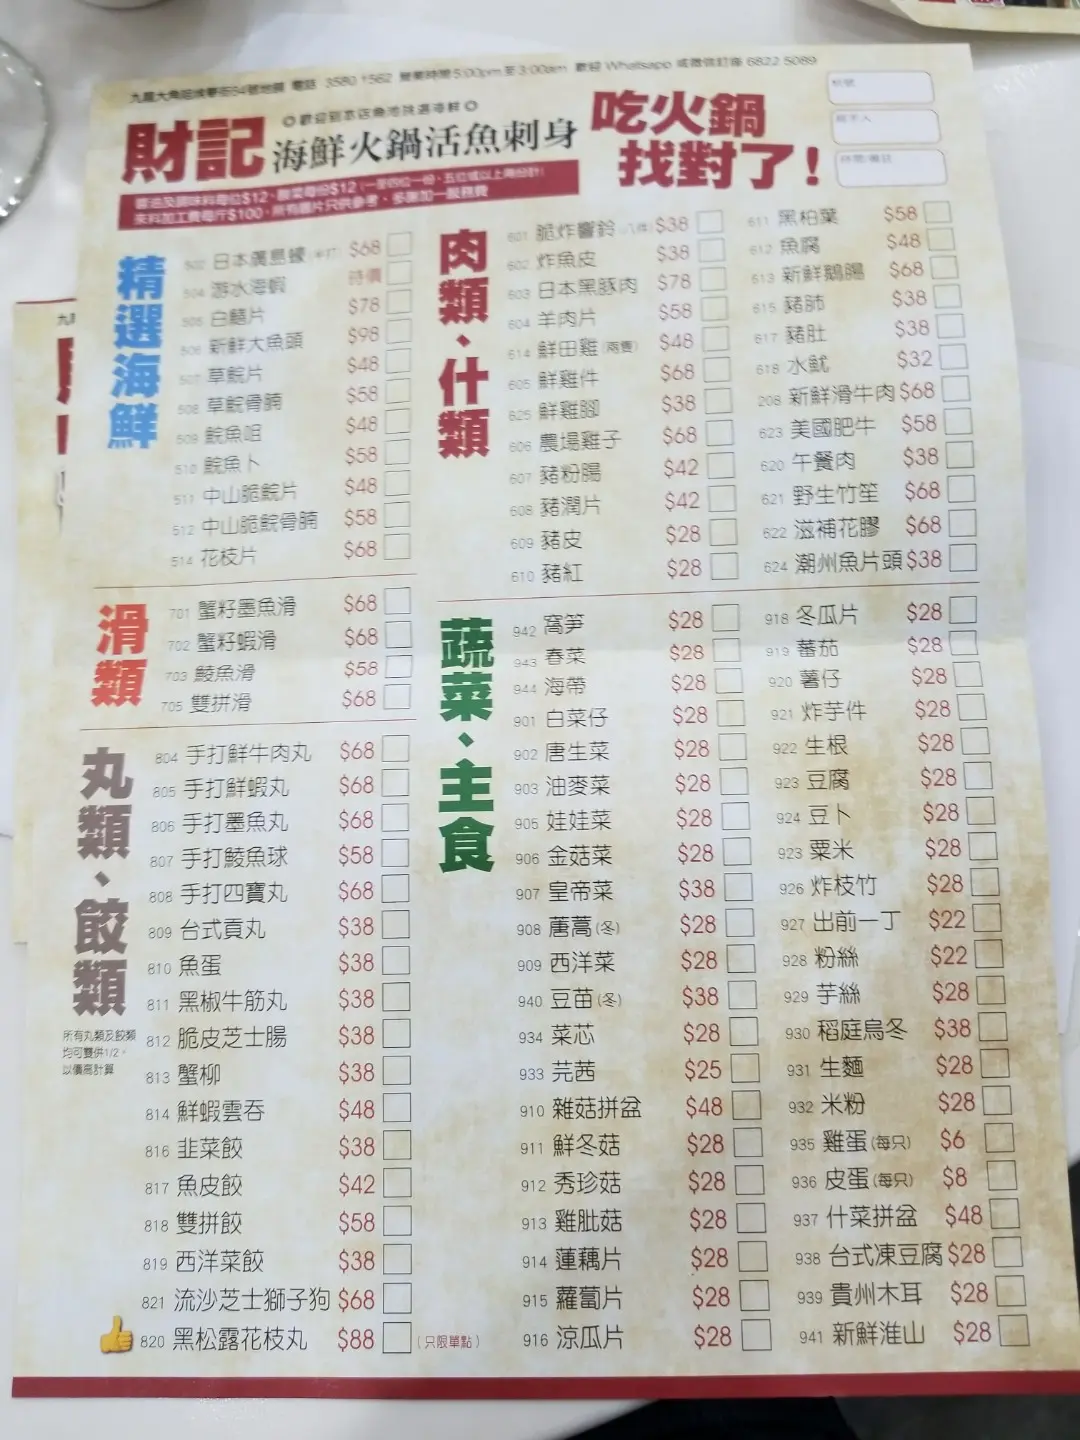 九龍大角咀埃華街64號地舖 電話 3580 1562 營業時間 5:00pm 至 3:00am 歡迎 Whatsapp 或微信訂座 6822 5089
歡迎到本店魚池挑選海鮮
財記 海鮮火鍋活魚刺身
吃火鍋
找對了!
醬油及調味料每位$12、酸菜每份$12 (一至四位一份，五位或以上兩份計)
來料加工費每斤$100，所有圖片只供參考，多惠加一服務費
精選海鮮
502 日本廣島蠔(半打) $68
504 游水海蝦 時價
505 白鱔片 $78
506 新鮮大魚頭 $98
507 草鯇片 $48
508 草鯇骨腩 $58
509 鯇魚咀 $48
510 鯇魚卜 $58
511 中山脆鯇片 $48
512 中山脆鯇骨腩 $58
514 花枝片 $68
滑類
701 蟹籽墨魚滑 $68
702 蟹籽蝦滑 $68
703 鯪魚滑 $58
705 雙拼滑 $68
丸類、餃類
所有丸類及餃類
均可雙併1/2，
以價高計算
804 手打鮮牛肉丸 $68
805 手打鮮蝦丸 $68
806 手打墨魚丸 $68
807 手打鯪魚球 $58
808 手打四寶丸 $68
809 台式貢丸 $38
810 魚蛋 $38
811 黑椒牛筋丸 $38
812 脆皮芝士腸 $38
813 蟹柳 $38
814 鮮蝦雲吞 $48
816 韭菜餃 $38
817 魚皮餃 $42
818 雙拼餃 $58
819 西洋菜餃 $38
821 流沙芝士獅子狗 $68
820 黑松露花枝丸 $88 (只限單點)
肉類、什類
601 脆炸響鈴(八件) $38
602 炸魚皮 $38
603 日本黑豚肉 $78
604 羊肉片 $58
614 鮮田雞(兩隻) $48
605 鮮雞件 $68
625 鮮雞腳 $38
606 農場雞子 $68
607 豬粉腸 $42
608 豬潤片 $42
609 豬皮 $28
610 豬紅 $28
611 黑柏葉 $58
612 魚腐 $48
613 新鮮鵝腸 $68
615 豬肺 $38
617 豬肚 $38
618 水魷 $32
208 新鮮滑牛肉 $68
623 美國肥牛 $58
620 午餐肉 $38
621 野生竹笙 $68
622 滋補花膠 $68
624 潮州魚片頭 $38
蔬菜、主食
942 窩笋 $28
943 春菜 $28
944 海帶 $28
901 白菜仔 $28
902 唐生菜 $28
903 油麥菜 $28
905 娃娃菜 $28
906 金菇菜 $28
907 皇帝菜 $38
908 蓎蒿(冬) $28
909 西洋菜 $28
940 豆苗(冬) $38
934 菜芯 $28
933 芫茜 $25
910 雜菇拼盆 $48
911 鮮冬菇 $28
912 秀珍菇 $28
913 雞肶菇 $28
914 蓮藕片 $28
915 蘿蔔片 $28
916 涼瓜片 $28
918 冬瓜片 $28
919 蕃茄 $28
920 薯仔 $28
921 炸芋件 $28
922 生根 $28
923 豆腐 $28
924 豆卜 $28
923 粟米 $28
926 炸枝竹 $28
927 出前一丁 $22
928 粉絲 $22
929 芋絲 $28
930 稻庭烏冬 $38
931 生麵 $28
932 米粉 $28
935 雞蛋(每只) $6
936 皮蛋(每只) $8
937 什菜拼盆 $48
938 台式凍豆腐 $28
939 貴州木耳 $28
941 新鮮淮山 $28